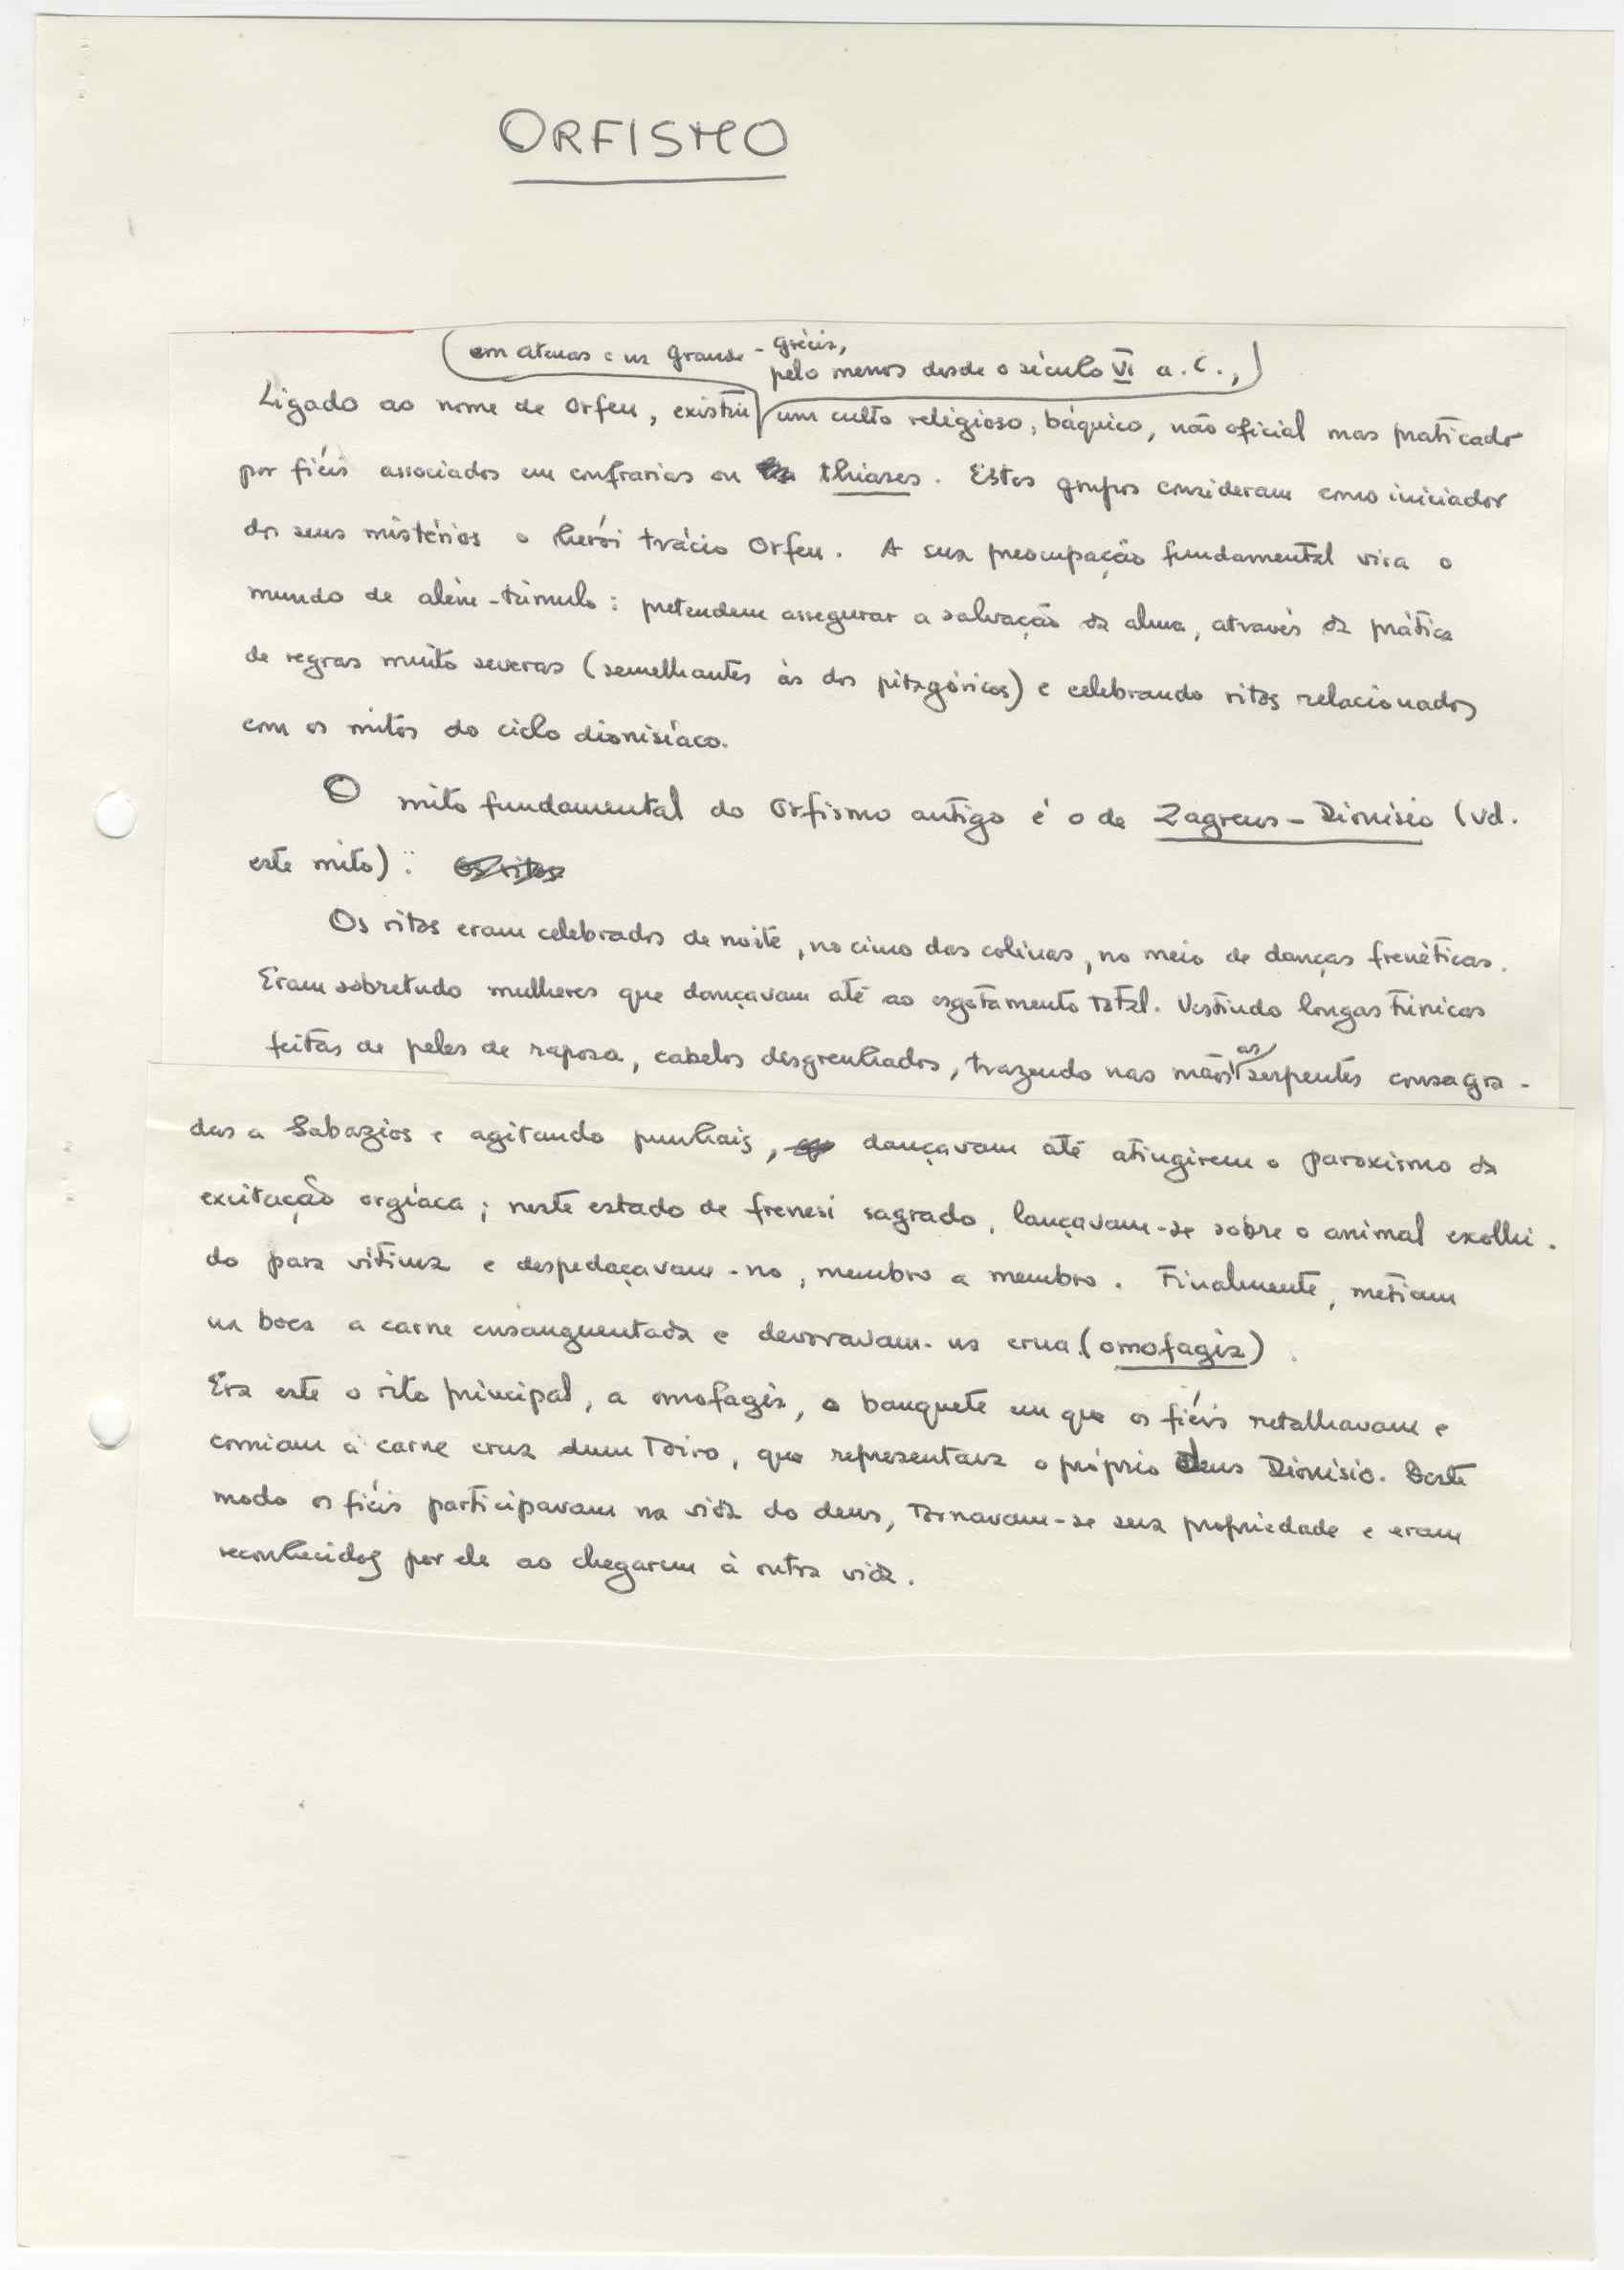 ORFISMO
(em Atenas e na Grande-Grécia,
pelo menos desde o século VI a.C.,)
Ligado ao nome de Orfeu, existiu um culto religioso, báquico, não oficial mas praticado
por fiéis associados em confrarias ou thiases. Estes grupos consideram como iniciador
dos seus mistérios o herói trácio Orfeu. A sua preocupação fundamental visa o
mundo de além-túmulo: pretendem assegurar a salvação da alma, através da prática
de regras muito severas (semelhantes às dos pitagóricos) e celebrando ritos relacionados
com os mitos do ciclo dionisíaco.
O mito fundamental do Orfismo antigo é o de Zagreus-Dionísio (vd.
este mito). Os ritos
Os ritos eram celebrados de noite, no cimo das colinas, no meio de danças frenéticas.
Eram sobretudo mulheres que dançavam até ao esgotamento total. Vestindo longas túnicas
feitas de peles de raposa, cabelos desgrenhados, trazendo nas mãos as serpentes consagra-
das a Sabazios e agitando punhais, dançavam até atingirem o paroxismo da
excitação orgíaca; neste estado de frenesi sagrado, lançavam-se sobre o animal escolhi-
do para vítima e despedaçavam-no, membro a membro. Finalmente, metiam
na boca a carne ensanguentada e devoravam-na crua (omofagia).
Era este o rito principal, a omofagia, o banquete em que os fiéis retalhavam e
comiam a carne crua dum toiro, que representava o próprio deus Dionísio. Deste
modo os fiéis participavam na vida do deus, tornavam-se sua propriedade e eram
reconhecidos por ele ao chegarem à outra vida.